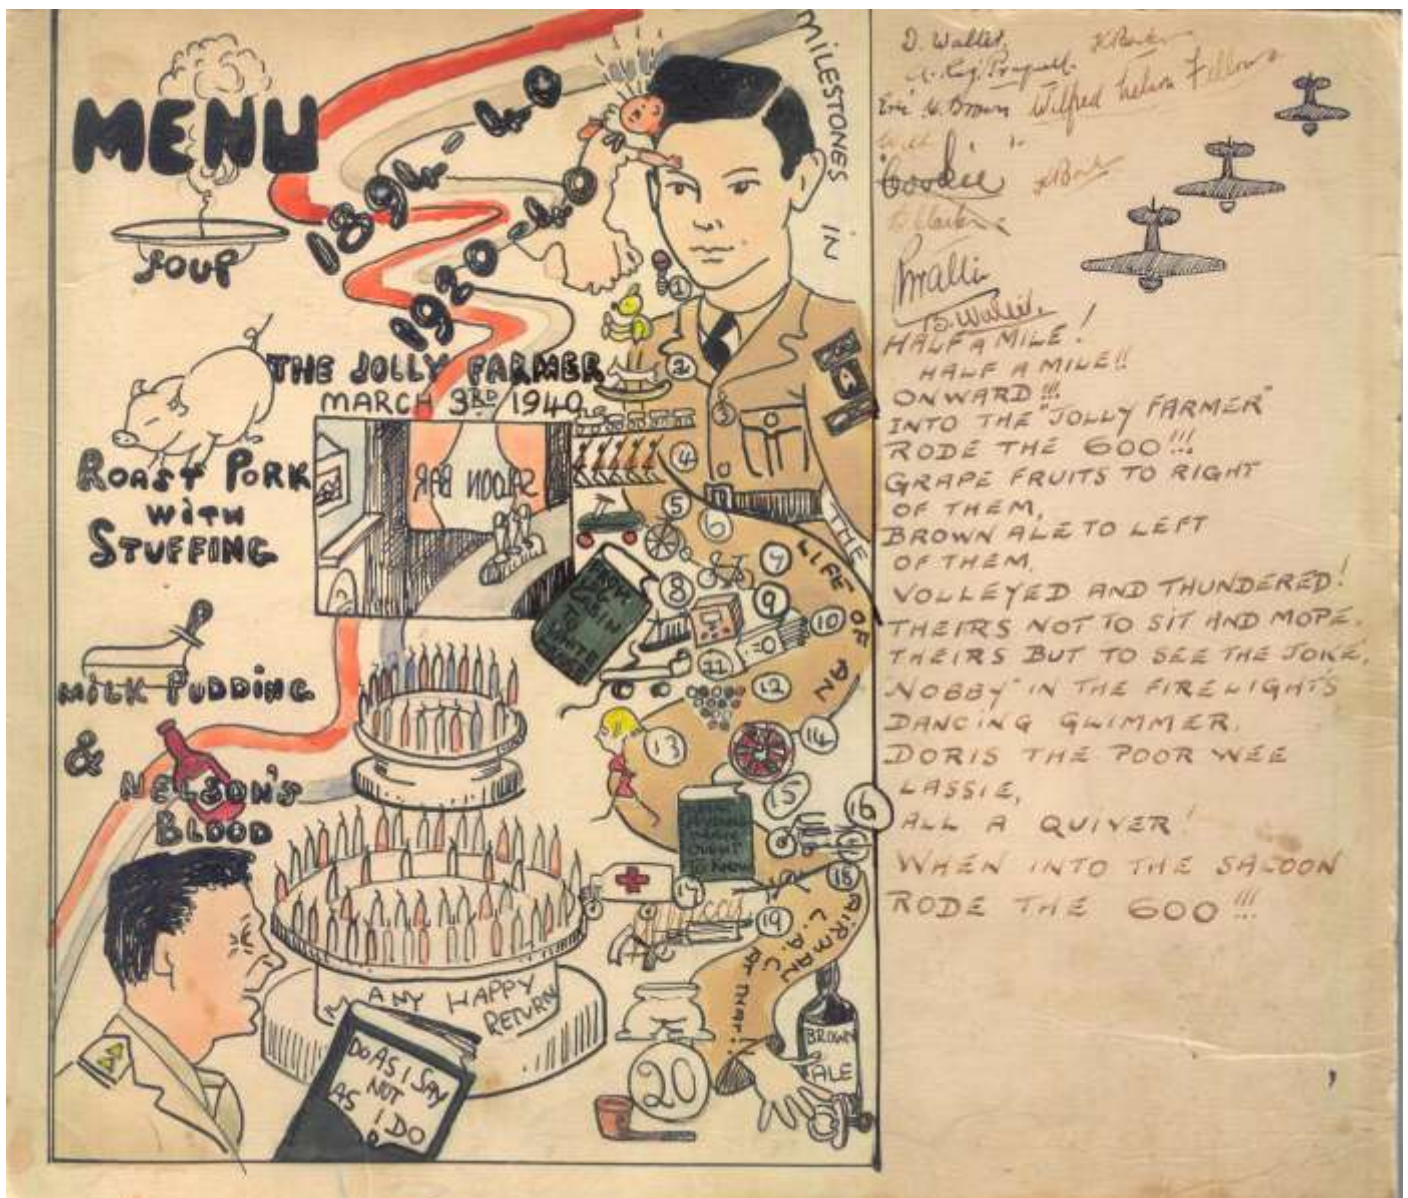 MENU
SOUP
1894-1940
1920-1940
THE JOLLY FARMER
MARCH 3RD 1940
SALOON BAR
ROAST PORK
WITH
STUFFING
MILK PUDDING
&
NELSON'S
BLOOD
MANY HAPPY
RETURN
DO AS I SAY
NOT
AS I DO
MILESTONES IN THE LIFE OF AN AIRMAN
L.A.C.
AT THAT!
1
2
3
4
5
6
7
8
9
10
11
12
13
14
15
16
17
18
19
20
OUGHT
TO KNOW
BROWN
ALE
D. Wallis,
Eric W. Brown
Wilfred Nelson Fellows
"Cookie"
B. Wallis.
HALF A MILE!
HALF A MILE!!
ONWARD!!!
INTO THE "JOLLY FARMER"
RODE THE 600!!!
GRAPE FRUITS TO RIGHT
OF THEM,
BROWN ALE TO LEFT
OF THEM,
VOLLEYED AND THUNDERED!
THEIRS NOT TO SIT AND MOPE.
THEIRS BUT TO SEE THE JOKE,
"NOBBY" IN THE FIRELIGHTS
DANCING GLIMMER.
DORIS THE POOR WEE
LASSIE,
ALL A QUIVER!
WHEN INTO THE SALOON
RODE THE 600!!!